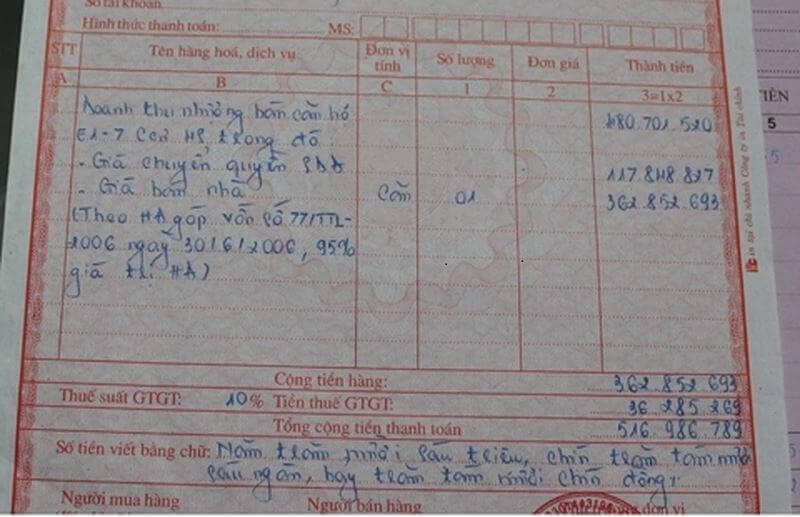 Số tài khoản
Hình thức thanh toán: MS:
STT Tên hàng hoá, dịch vụ Đơn vị tính Số lượng Đơn giá Thành tiền
A B C 1 2 3=1x2
Doanh thu nhượng bán căn hộ 480.701.520
E1-7 trong đó:
- Giá chuyển quyền SDĐ 117.848.827
- Giá bán nhà Căn 01 362.852.693
(Theo HĐ góp vốn số 77/TTL-
2006 ngày 30/6/2006, 95%
giá trị HĐ)
Cộng tiền hàng: 362.852.693
Thuế suất GTGT: 10% Tiền thuế GTGT: 36.285.269
Tổng cộng tiền thanh toán 516.986.789
Số tiền viết bằng chữ: Năm trăm mười sáu triệu, chín trăm tám mươi
sáu ngàn, bảy trăm tám mươi chín đồng
Người mua hàng Người bán hàng đơn vị
IÊN
5
in tại chi nhánh Công ty in Tài chính